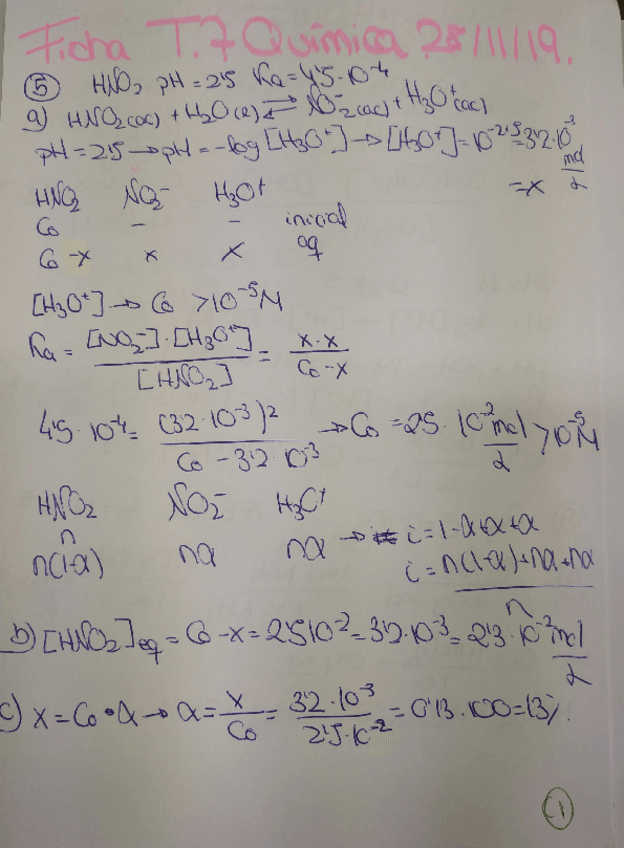 Ficha T.7 Química 28/11/19.
⑤ HNO₂ pH = 2'5 Ka = 4'5·10⁻⁴
a) HNO₂(ac) + H₂O(l) ⇄ NO₂⁻(ac) + H₃O⁺(ac)
pH = 2'5 → pH = -log [H₃O⁺] → [H₃O⁺] = 10⁻²'⁵ = 3'2·10⁻³ mol/L
= x
HNO₂ NO₂⁻ H₃O⁺
Co - - inicial
Co - x x x eq
[H₃O⁺] → Co > 10⁻⁵ M
Ka = [NO₂⁻]·[H₃O⁺] / [HNO₂] = x·x / Co - x
4'5·10⁻⁴ = (3'2·10⁻³)² / Co - 3'2·10⁻³ → Co = 2'5·10⁻² mol/L > 10⁻⁵ M
HNO₂ NO₂⁻ H₃O⁺
n
n(1-α) nα nα → i = 1-α+α+α
i = n(1-α)+nα+nα / n
b) [HNO₂]eq = Co - x = 2'5·10⁻² = 3'2·10⁻³ = 2'3·10⁻² mol/L
c) x = Co·α → α = x / Co = 3'2·10⁻³ / 2'5·10⁻² = 0'13·100 = 13%.
①